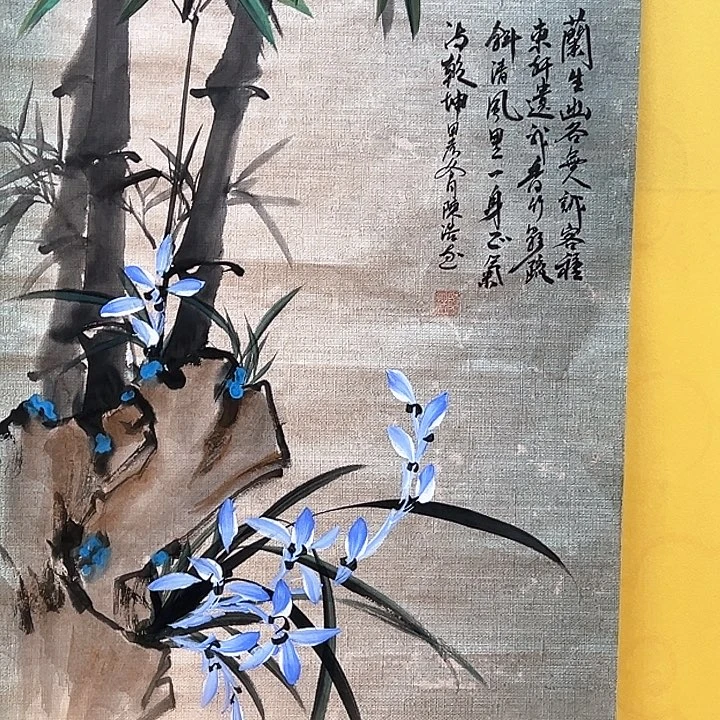 蘭生幽谷無人識客種
東軒遺我香竹影疏
斜清風里一身正氣
满乾坤 冬月陳浩画